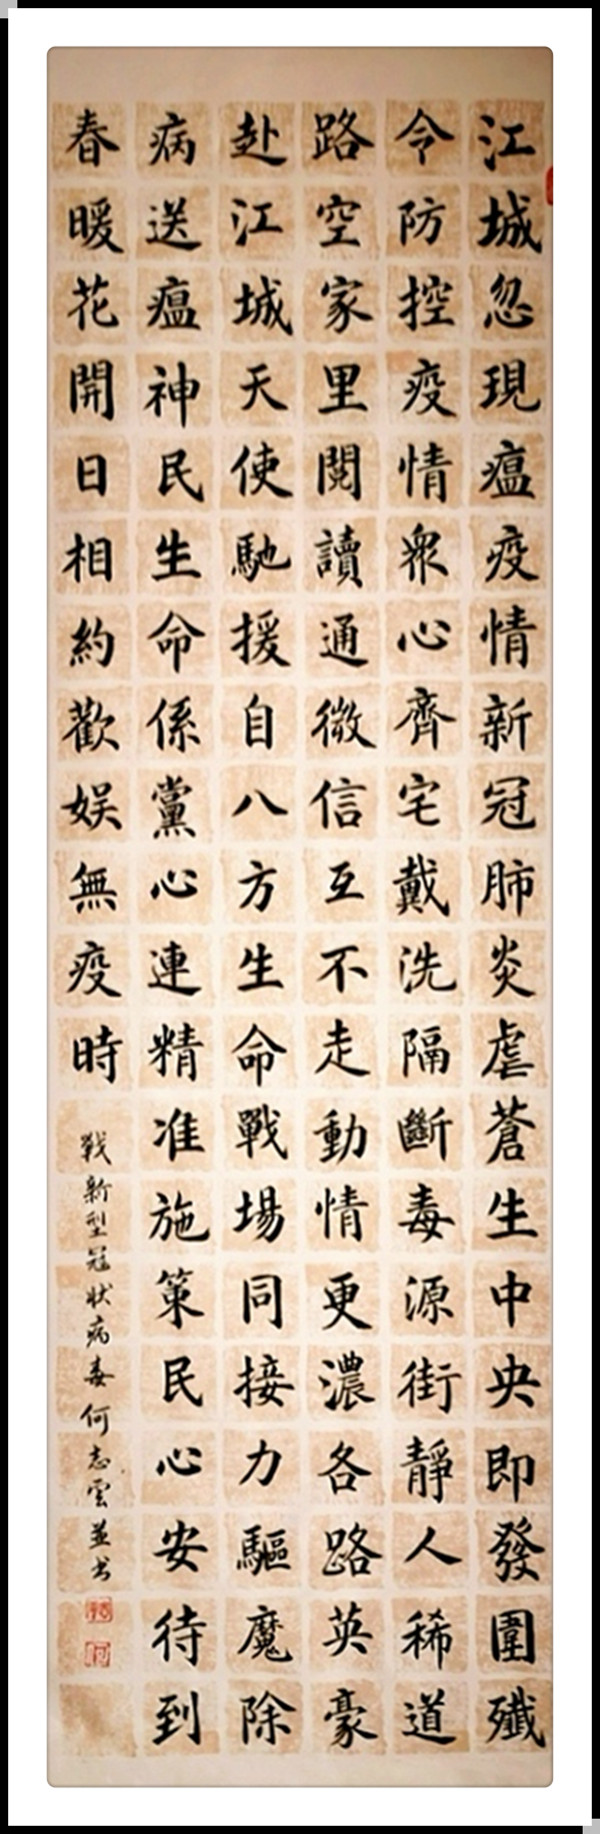 江城忽現瘟疫情新冠肺炎虐蒼生中央即發圍殲
令防控疫情衆心齊宅戴洗隔斷毒源街靜人稀道
路空家里閱讀通微信互不走動情更濃各路英豪
赴江城天使馳援自八方生命戰場同接力驅魔除
病送瘟神民生命係黨心連精准施策民心安待到
春暖花開日相約歡娱無疫時
戰新型冠狀病毒何志雲並书